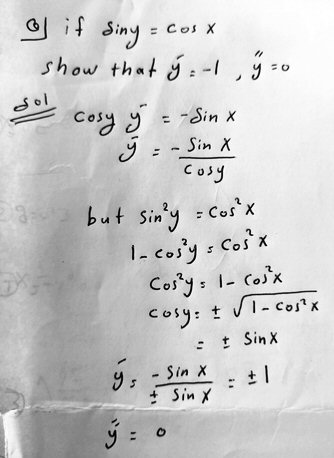 Q] if siny = cos x
show that ý = -1 , y̋ = 0
sol
cosy ý = -Sin x
ý = - Sin x / cosy
but sin²y = cos²x
1 - cos²y = cos²x
cos²y = 1 - cos²x
cosy = ± √1 - cos²x
= ± Sin x
ý = - Sin x / ± Sin x = ± 1
y̋ = 0